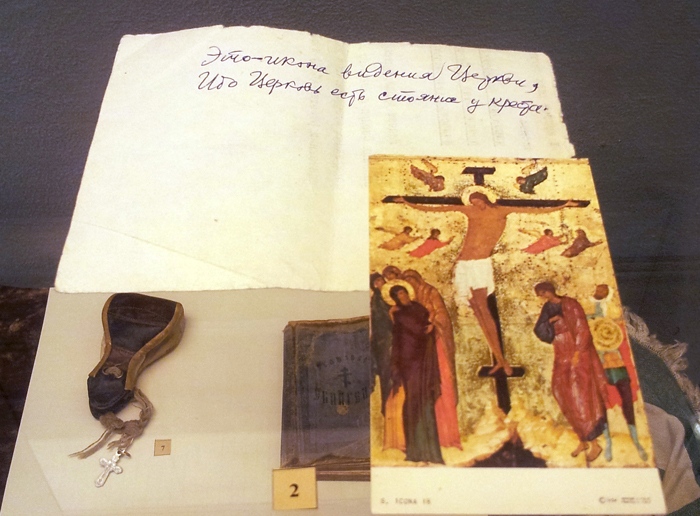 Это-икона видения Церкви,
Ибо Церковь есть стояние у креста.
7
2